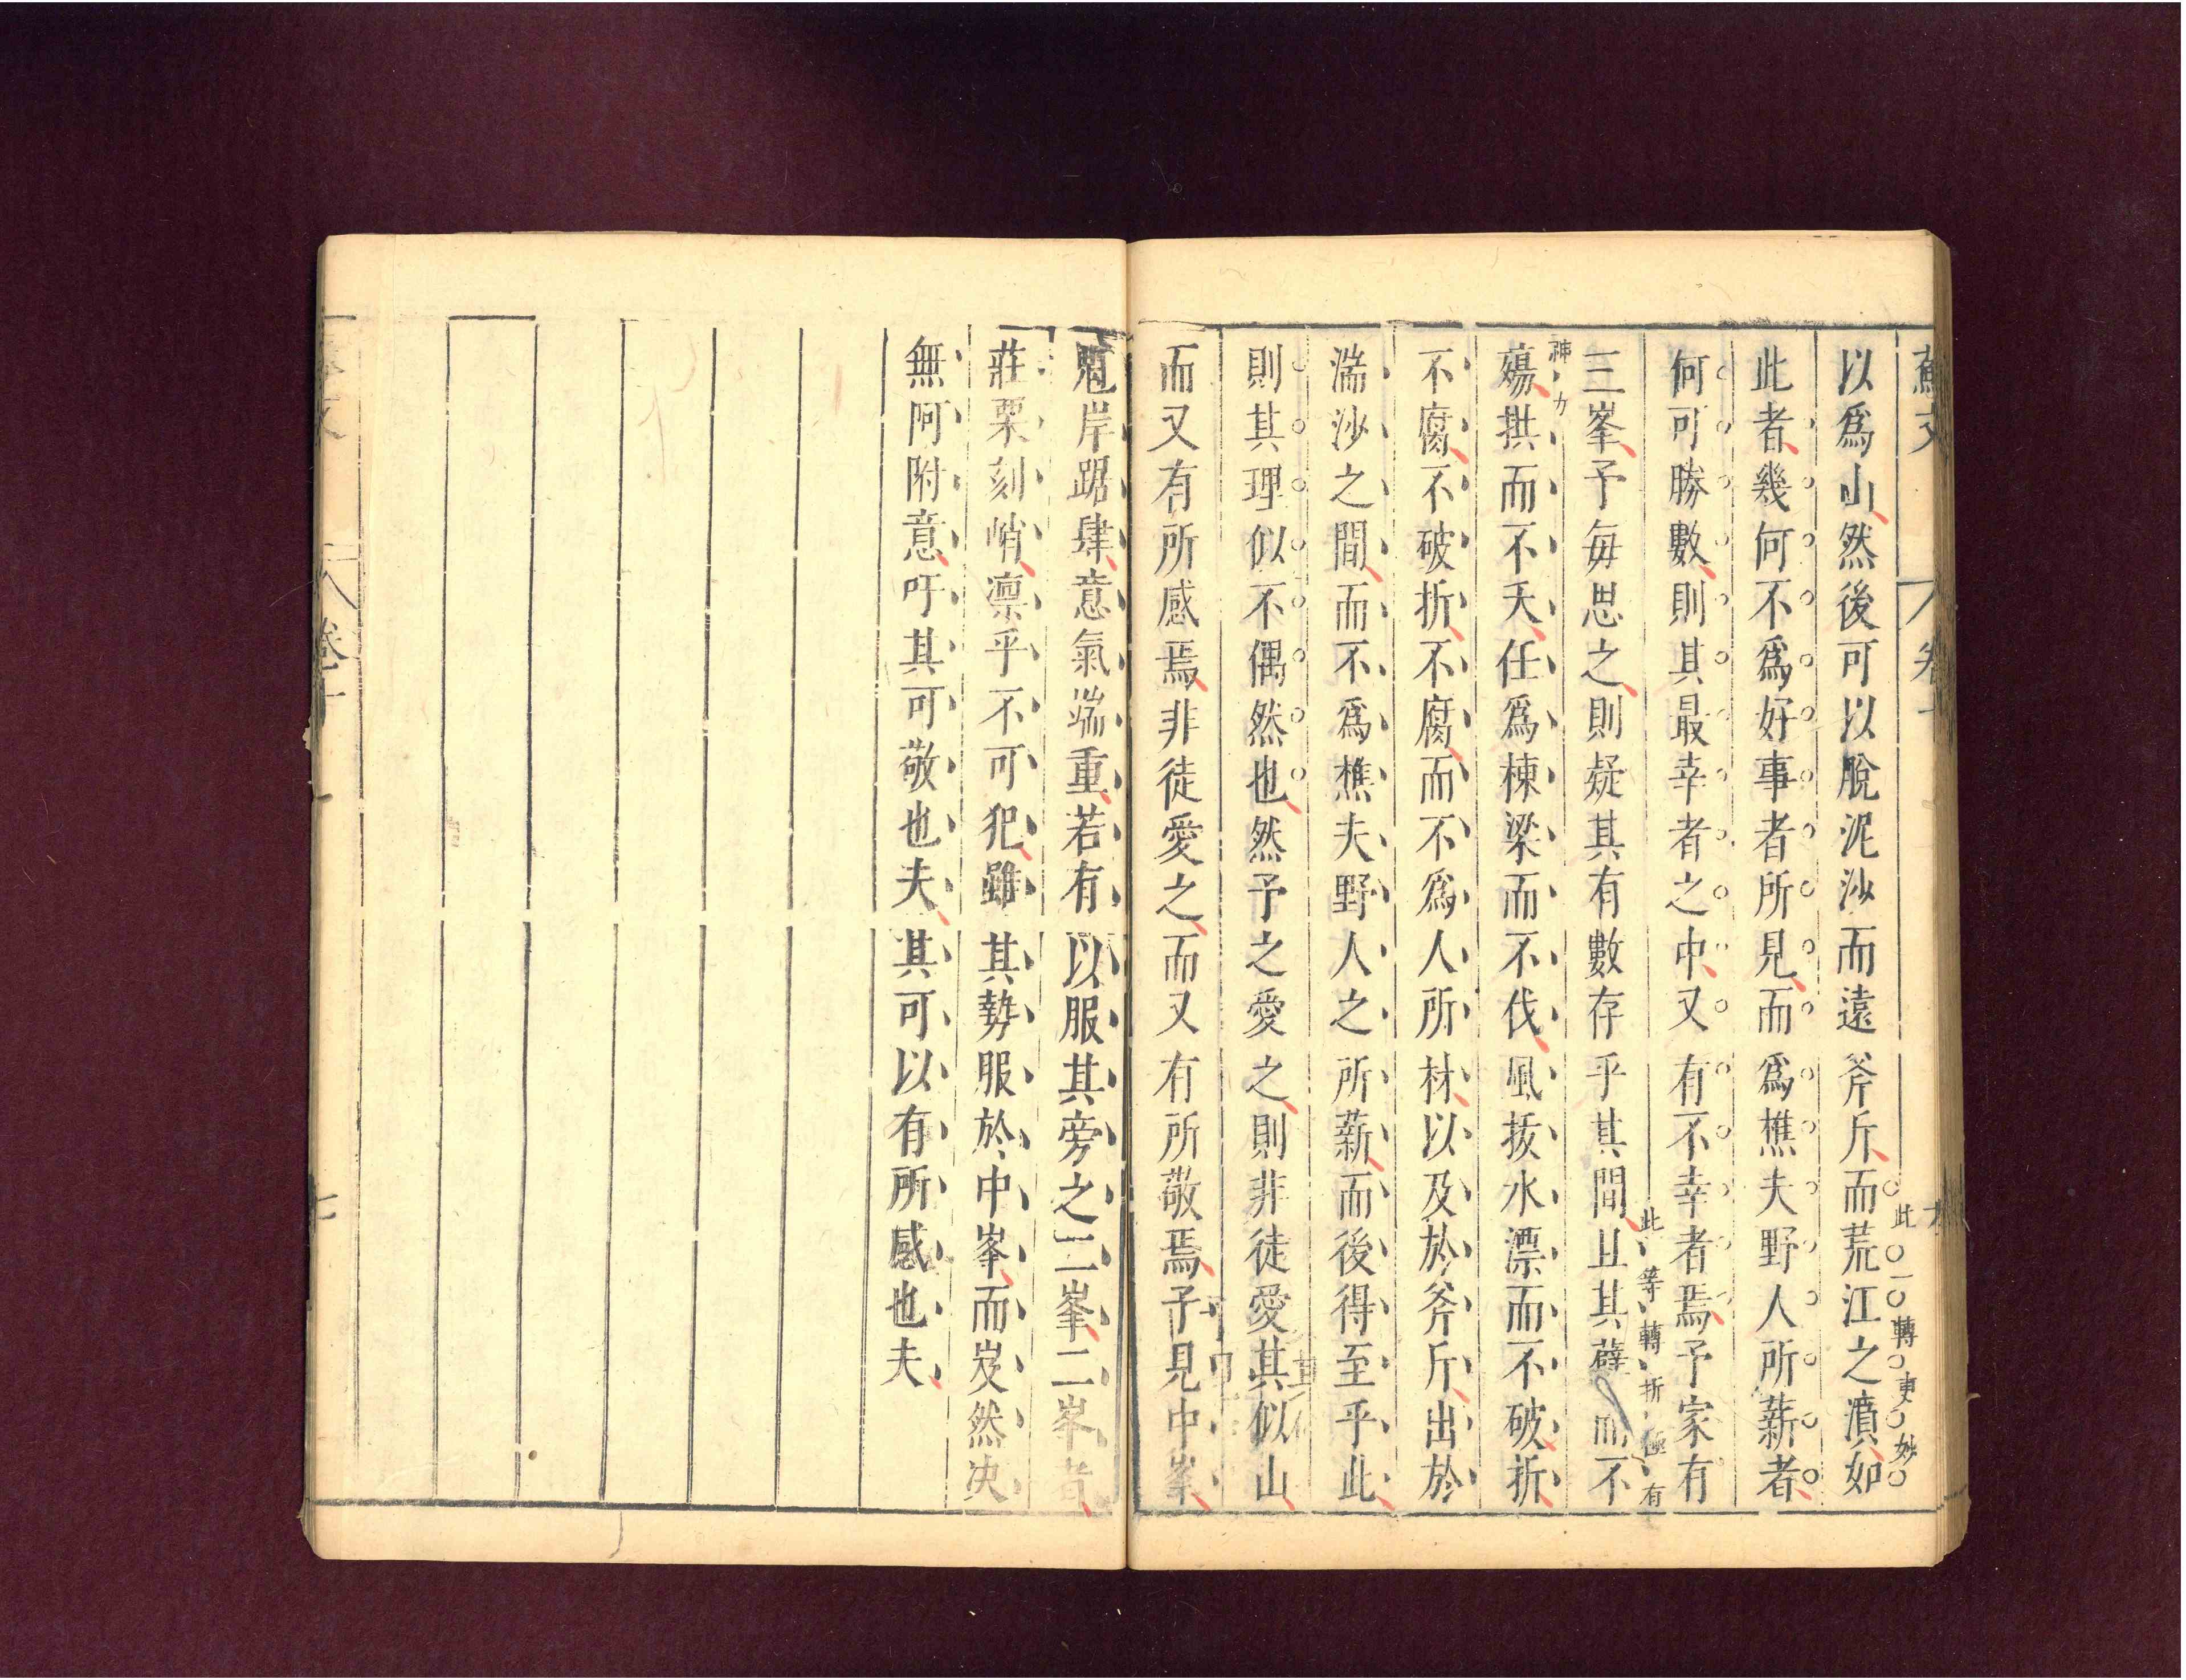 蘇文
卷十
以爲山然後可以脫泥沙而遠斧斤而荒江之濆如
此一轉更妙
此者幾何不爲好事者所見而爲樵夫野人所薪者
何可勝數則其最幸者之中又有不幸者焉予家有
此等轉折極有
三峯予每思之則疑其有數存乎其間且其蘖而不
神力
殤拱而不夭任爲棟梁而不伐風拔水漂而不破折
不腐不破折不腐而不爲人所材以及於斧斤出於
湍沙之間而不爲樵夫野人之所薪而後得至乎此
則其理似不偶然也然予之愛之則非徒愛其似山
而又有所感焉非徒愛之而又有所敬焉予見中峯
魁岸踞肆意氣端重若有以服其旁之二峯二峯者
莊栗刻峭凛乎不可犯雖其勢服於中峯而岌然决
無阿附意吁其可敬也夫其可以有所感也夫
卷十
七